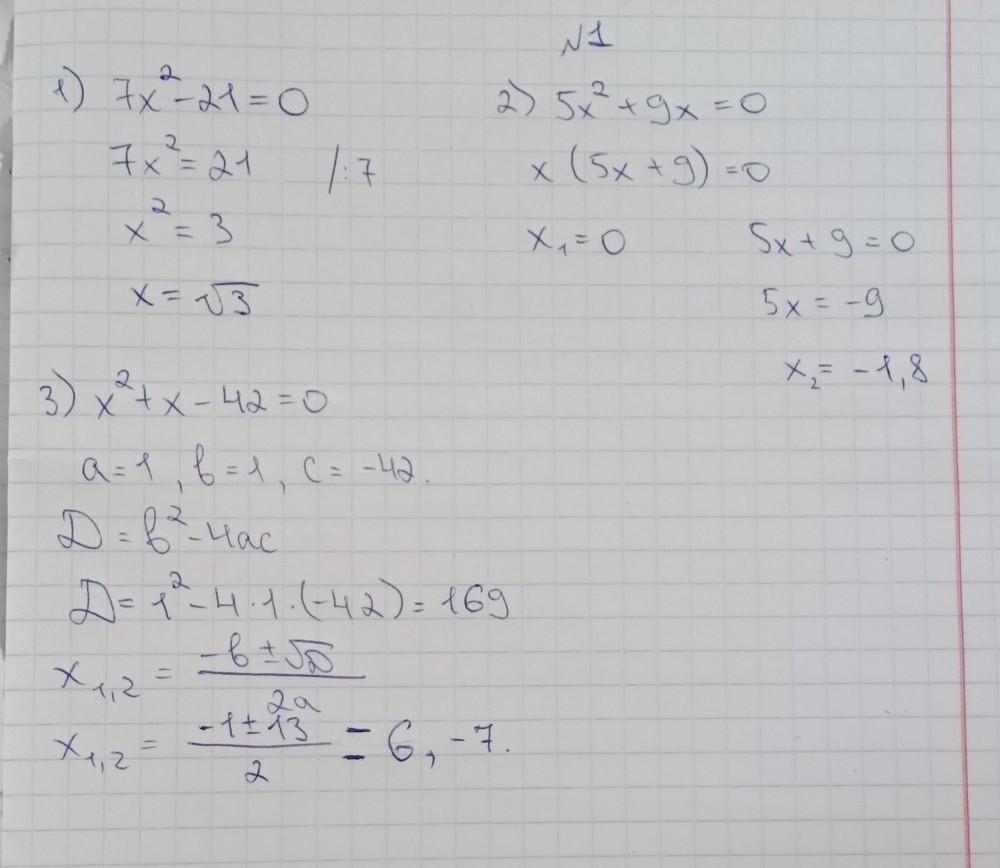 №1
1) 7x² - 21 = 0
7x² = 21 /:7
x² = 3
x = √3
2) 5x² + 9x = 0
x (5x + 9) = 0
x₁ = 0 5x + 9 = 0
5x = -9
x₂ = -1,8
3) x² + x - 42 = 0
a = 1, b = 1, c = -42.
D = b² - 4ac
D = 1² - 4·1·(-42) = 169
x₁,₂ = (-b ± √D) / 2a
x₁,₂ = (-1 ± 13) / 2 = 6, -7.